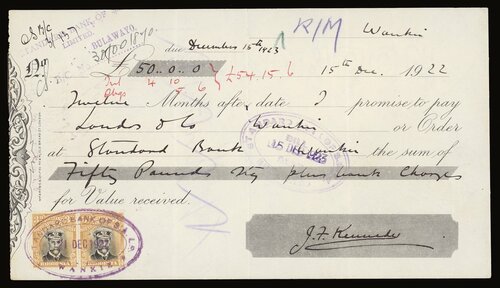 R/M Wankie
BULAWAYO
LIMITED.
due December 15th 1923
£ 50..0..0
£54.15.6
Int 4 10
Chgs 5 6
15th Dec. 1922
Twelve Months after date I promise to pay
Landau & Co Wankie or Order
at Standard Bank Wankie the sum of
Fifty Pounds Stg plus bank Charges
for Value received.
15 DEC 1923
STANDARD BANK OF S.A. LD
DEC
WANKIE
J. F. Kennedy